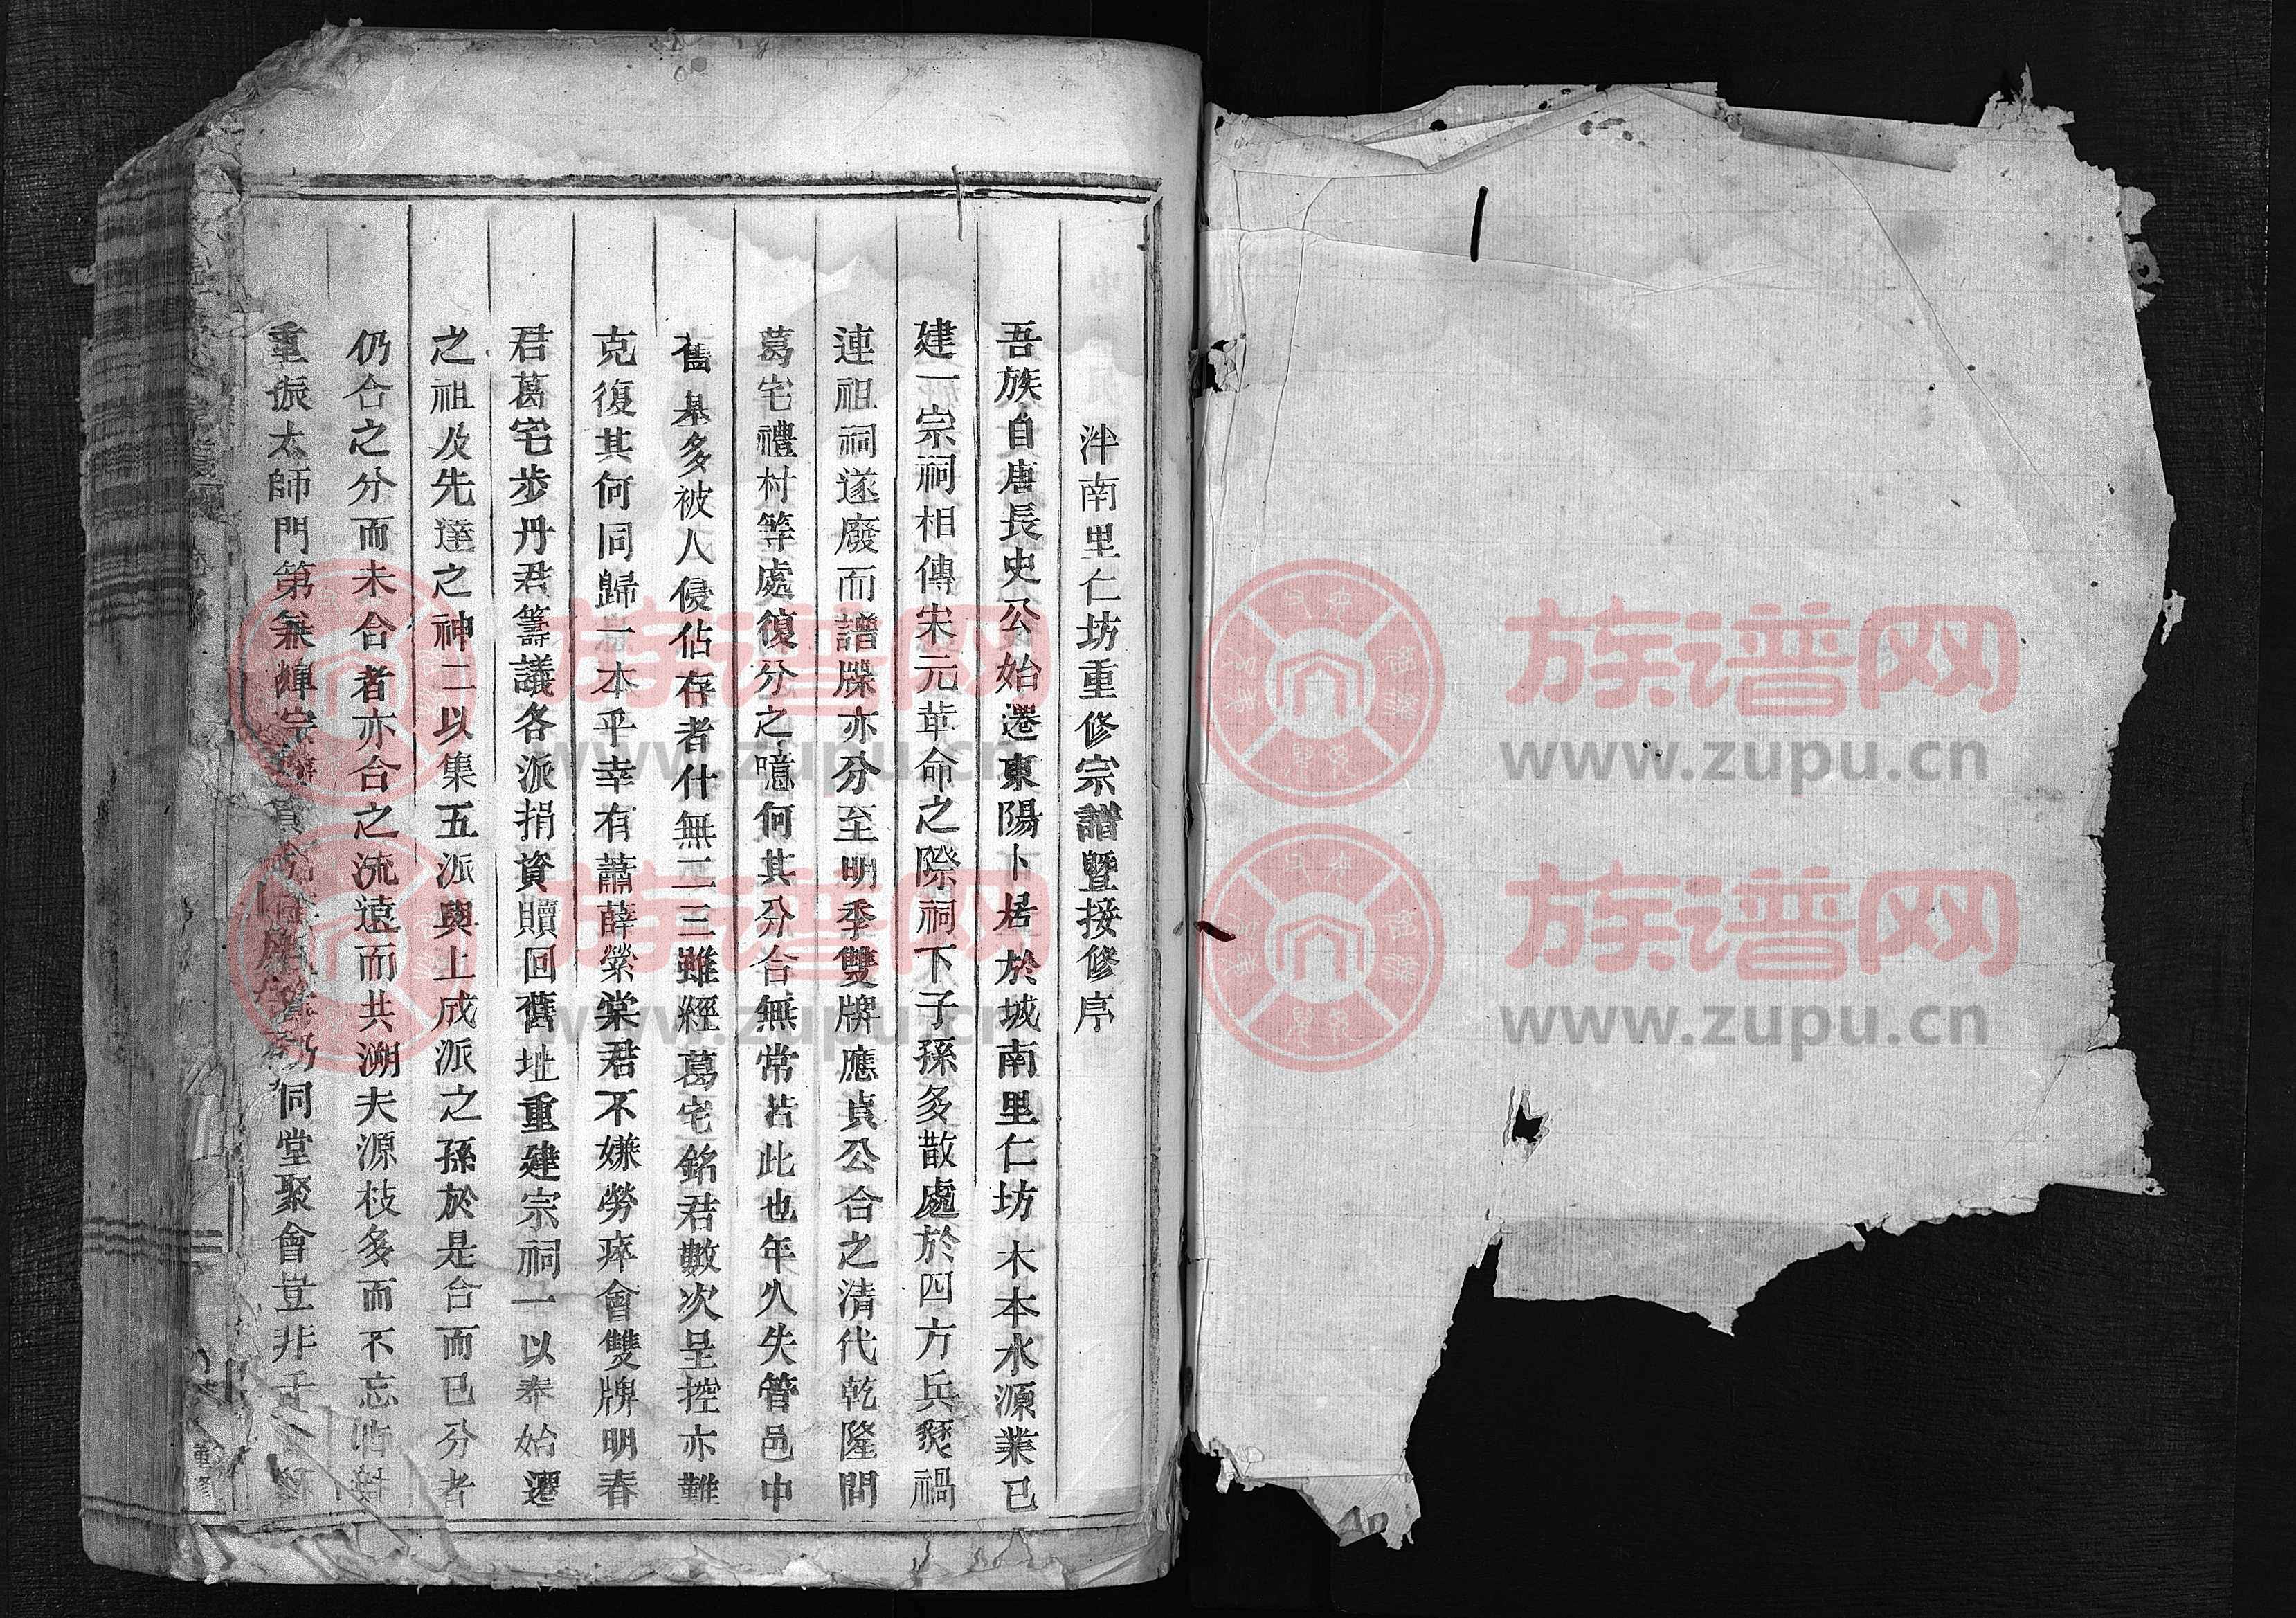 泮南里仁坊重修宗譜暨接修序
吾族自唐長史公始遷東陽卜居於城南里仁坊木本水源業已
建一宗祠相傳宋元革命之際祠下子孫多散處於四方兵燹禍
連祖祠遂廢而譜牒亦分至明季雙牌應貞公合之清代乾隆間
葛宅禮村等處復分之噫何其分合無常若此也年久失管邑中
舊基多被人侵佔存者什無二三雖經葛宅銘君數次呈控亦難
克復其何同歸一本乎幸有蕭薛縈棠君不嫌勞瘁會雙牌明春
君葛宅步丹君籌議各派捐資贖回舊址重建宗祠一以奉始遷
之祖及先達之神二以集五派與上成派之孫於是合而已分者
仍合之分而未合者亦合之流遠而共溯夫源枝多而不忘
重振太師門第無輝宗 同堂聚會豈非
重修
族谱网
www.zupu.cn
族谱网
www.zupu.cn
族谱网
www.zupu.cn
族谱网
www.zupu.cn